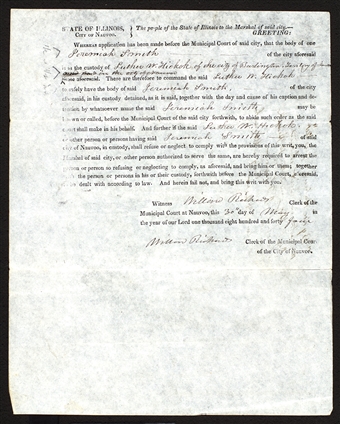 STATE OF ILLINOIS, The people of the State of Illinois to the Marshal of said city,
CITY OF NAUVOO. GREETING:
WHEREAS application has been made before the Municipal Court of said city, that the body of one
Jeremiah Smith of the city aforesaid
is in the custody of Luther W. Hickok of the city of Washington
aforesaid. These are therefore to command the said Luther W. Hickok
to safely have the body of said Jeremiah Smith, of the city
aforesaid, in his custody detained, as it is said, together with the day and cause of his caption and de-
tention by whatsoever name the said Jeremiah Smith, may be
known or called, before the Municipal Court of the said city forthwith, to abide such order as the said
court shall make in his behalf. And further if the said Luther W. Hickok,
or other person or persons having said Jeremiah Smith of said
city of Nauvoo, in custody, shall refuse or neglect to comply with the provisions of this writ, you, the
Marshal of said city, or other person authorised to serve the same, are hereby required to arrest the
person or persons so refusing or neglecting to comply, as aforesaid, and bring him or them, together
with the person or persons in his or their custody, forthwith before the Municipal Court, aforesaid,
to be dealt with according to law. And herein fail not, and bring this writ with you.
Witness Willard Richards Clerk of the
Municipal Court at Nauvoo, this 30 day of May, in
the year of our Lord one thousand eight hundred and forty four
Willard Richards Clerk of the Municipal Court
of the City of Nauvoo.